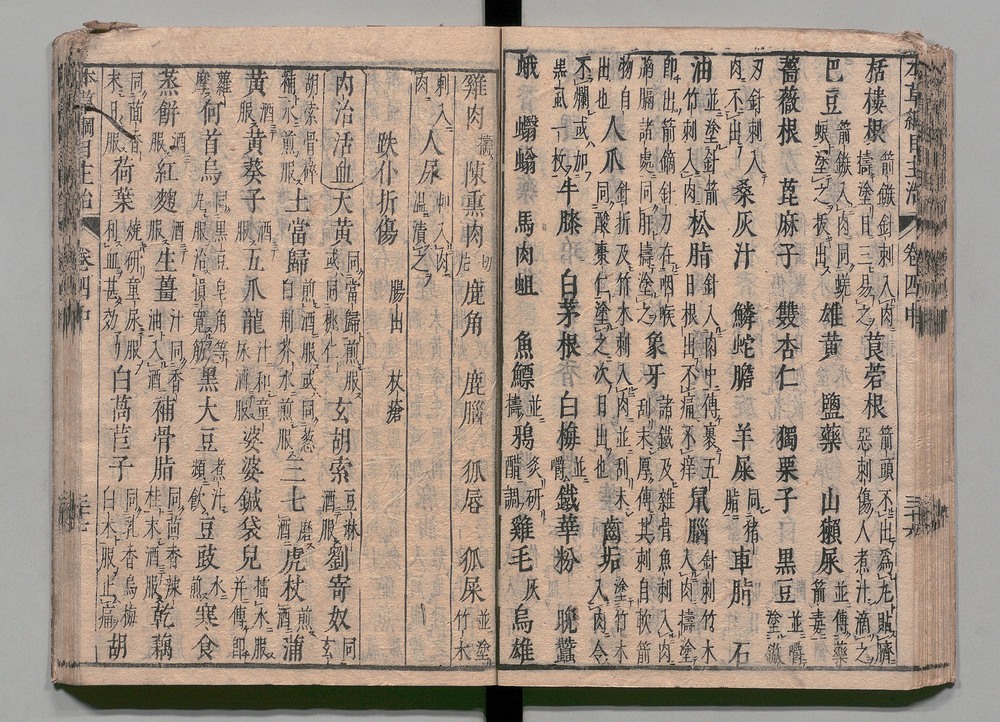 栝樓根 箭鏃針刺入肉擣塗日三易之 莨菪根 箭頭不出為丸貼臍惡刺傷人煮汁滴之
巴豆 箭鏃入肉同蜣螂塗之拔出 雄黃 鹽藥 山獺屎 並傅藥箭毒
薔薇根 蓖麻子 雙杏仁 獨栗子 黑豆 並嚼塗鏃
刃針刺入肉不出 桑灰汁 鱗蛇膽 羊屎 同猪脂 車脂 石
油 並塗針箭竹刺入肉 松脂 針入肉中傅裹五日根出不痛不痒 鼠腦 針刺竹木入肉擣塗
即出箭鏑針刀在咽喉滿膈諸處同肝擣塗之 象牙 諸鐵及雜骨魚刺入肉刮末厚傅其刺自軟箭
物自 人爪 針折及竹木刺入肉並刮末同酸棗仁塗之次日出也 齒垢 塗竹木入肉令
不爛也或加黑虱一枚 牛膝 白茅根 白梅 並嚼 鐵華粉 晚蠶
蛾 蠮螉 馬肉蛆 魚鰾 並擣 鴉 炙研醋調 雞毛 灰 烏雄
雞肉 擣 陳熏肉 切片 鹿角 鹿腦 狐唇 狐屎 並塗竹木
刺入肉 人尿 刺入肉温漬之
跌仆折傷 腸出 杖瘡
内治活血 大黃 同當歸煎服或同桃仁 玄胡索 豆淋酒服 劉寄奴 同玄
胡索骨碎補水煎服 土當歸 煎服或同葱白荆芥水煎服 三七 磨酒 虎杖 煎酒 蒲
黃 酒服 黃葵子 酒服 五爪龍 汁和童尿酒服 婆婆鍼袋兒 擂水服并傅即
蘿摩 何首烏 同黑豆皂角等丸服治損寬筋 黑大豆 煮汁頻飲 豆豉 水煎 寒食
蒸餅 酒服 紅麴 酒服 生薑 汁同香油入酒 補骨脂 同茴香辣桂末酒服 乾藕
同茴香末日服 荷葉 燒研童尿服利血甚效 白萵苣子 同乳香烏梅白术服止痛 胡
本草綱目主治 卷四中